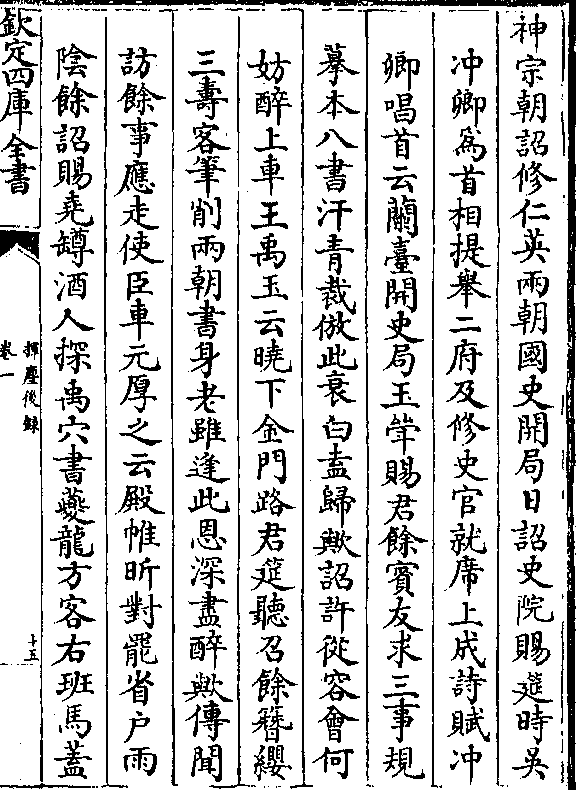 神宗朝詔修仁英兩朝國史開局日詔史院賜筵時吳
冲卿爲首相提舉二府及修史官就席上成詩賦冲
卿唱首云蘭臺開史局玉斝賜君餘賓友求三事規
摹本八書汗青裁倣此衰白盍歸歟詔許從容㑹何
妨醉上車王禹玉云曉下金門路君筵聽召餘簪纓
三壽客筆削兩朝書身老雖逢此恩深盡醉歟傳聞
訪餘事應走使臣車元厚之云殿帷昕對罷省户雨
陰餘詔賜堯罇酒人探禹穴書夔龍方客右班馬蓋
欽定四庫全書
揮麈後錄
卷一
十五